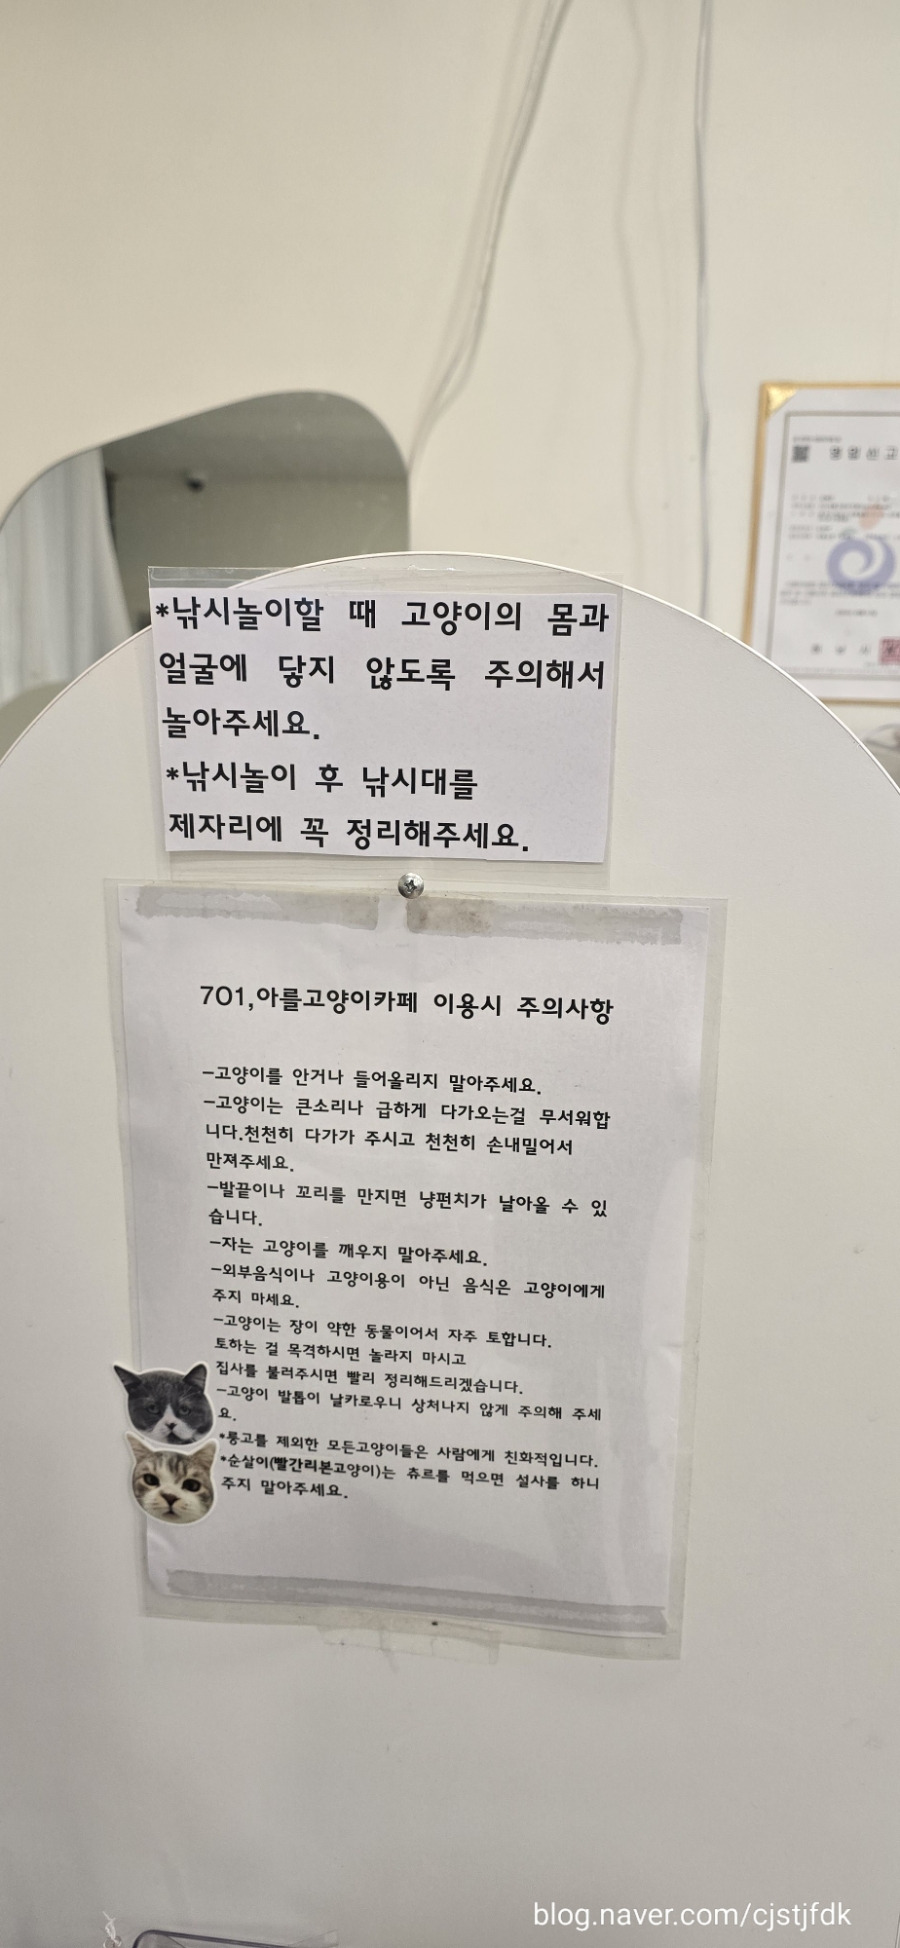 영업신고
*낚시놀이할 때 고양이의 몸과
얼굴에 닿지 않도록 주의해서
놀아주세요.
*낚시놀이 후 낚시대를
제자리에 꼭 정리해주세요.
701,아를고양이카페 이용시 주의사항
-고양이를 안거나 들어올리지 말아주세요.
-고양이는 큰소리나 급하게 다가오는걸 무서워합
니다.천천히 다가가 주시고 천천히 손내밀어서
만져주세요.
-발끝이나 꼬리를 만지면 냥펀치가 날아올 수 있
습니다.
-자는 고양이를 깨우지 말아주세요.
-외부음식이나 고양이용이 아닌 음식은 고양이에게
주지 마세요.
-고양이는 장이 약한 동물이어서 자주 토합니다.
토하는 걸 목격하시면 놀라지 마시고
집사를 불러주시면 빨리 정리해드리겠습니다.
-고양이 발톱이 날카로우니 상처나지 않게 주의해 주세
요.
*룽고를 제외한 모든고양이들은 사람에게 친화적입니다.
*순살이(빨간리본고양이)는 츄르를 먹으면 설사를 하니
주지 말아주세요.
blog.naver.com/cjstjfdk